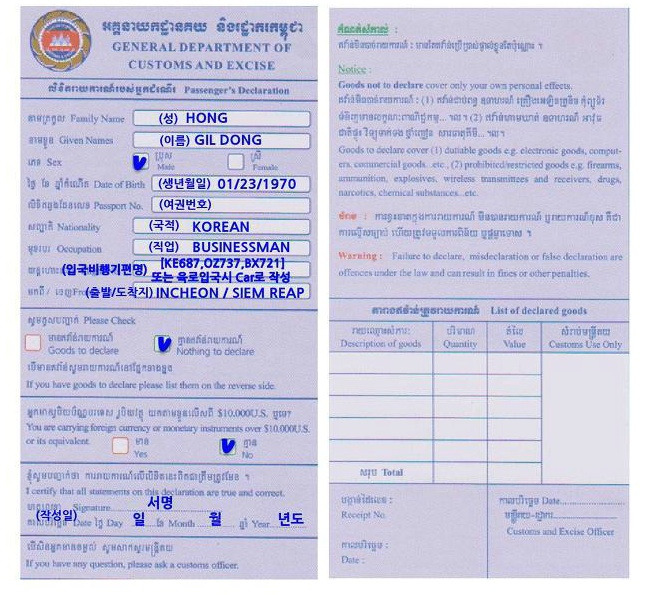 អគ្គនាយកដ្ឋានគយ និងរដ្ឋាករកម្ពុជា
GENERAL DEPARTMENT OF
CUSTOMS AND EXCISE
លិខិតរាយការណ៍របស់អ្នកដំណើរ Passenger's Declaration
នាមត្រកូល Family Name (성) HONG
នាមខ្លួន Given Names (이름) GIL DONG
ភេទ Sex ប្រុស Male ស្រី Female
ថ្ងៃ ខែ ឆ្នាំកំណើត Date of Birth (생년월일) 01/23/1970
លិខិតឆ្លងដែនលេខ Passport No. (여권번호)
សញ្ជាតិ Nationality (국적) KOREAN
មុខរបរ Occupation (직업) BUSINESSMAN
(입국비행기편명) [KE687,OZ737,BX721]
또는 육로입국시 Car로 작성
មកពី / ចេញ (출발/도착지) INCHEON / SIEM REAP
សូមគូសបញ្ជាក់ Please Check
មានឥវ៉ាន់រាយការណ៍ គ្មានឥវ៉ាន់រាយការណ៍
Goods to declare Nothing to declare
បើមានឥវ៉ាន់សូមរាយការណ៍នៅផ្នែកខាងខ្នង
If you have goods to declare please list them on the reverse side.
អ្នកមានរូបិយប័ណ្ណបរទេស ឬរូបិយវត្ថុ យកតាមខ្លួនលើសពី $10.000U.S. ឬទេ?
You are carrying foreign currency or monetary instruments over $10.000U.S.
or its equivalent. មាន Yes គ្មាន No
ខ្ញុំសូមបញ្ជាក់ថា ការរាយការណ៍លើលិខិតនេះពិតជាត្រឹមត្រូវមែន ។
I certify that all statements on this declaration are true and correct.
Signature 서명
(작성일) Date ថ្ងៃ Day 일 ខែ Month 월 ឆ្នាំ Year 년도
បើសិនអ្នកមានចម្ងល់ សូមសាកសួរមន្ត្រីគយ
If you have any question, please ask a customs officer.
កំណត់សំគាល់ :
ឥវ៉ាន់មិនបាច់រាយការណ៍ : មានតែឥវ៉ាន់ប្រើប្រាស់ផ្ទាល់ខ្លួនតែប៉ុណ្ណោះ ។
Notice :
Goods not to declare cover only your own personal effects.
Goods to declare cover (1) dutiable goods e.g. electronic goods, comput-
ers, commercial goods...etc., (2) prohibited/restricted goods e.g. firearms,
ammunition, explosives, wireless transmittees and receivers, drugs,
narcotics, chemical substances...etc.
Warning : Failure to declare, misdeclaration or false declaration are
offences under the law and can result in fines or other penalties.
តារាងឥវ៉ាន់ត្រូវរាយការណ៍ List of declared goods
រាយឈ្មោះសំភារៈ បរិមាណ តំលៃ សំរាប់មន្ត្រីគយ
Description of goods Quantity Value Customs Use Only
សរុប Total
បង្កាន់ដៃលេខ :
Receipt No.
កាលបរិច្ឆេទ :
Date :
កាលបរិច្ឆេទ Date
មន្ត្រីគយ-រដ្ឋាករ
Customs and Excise Officer